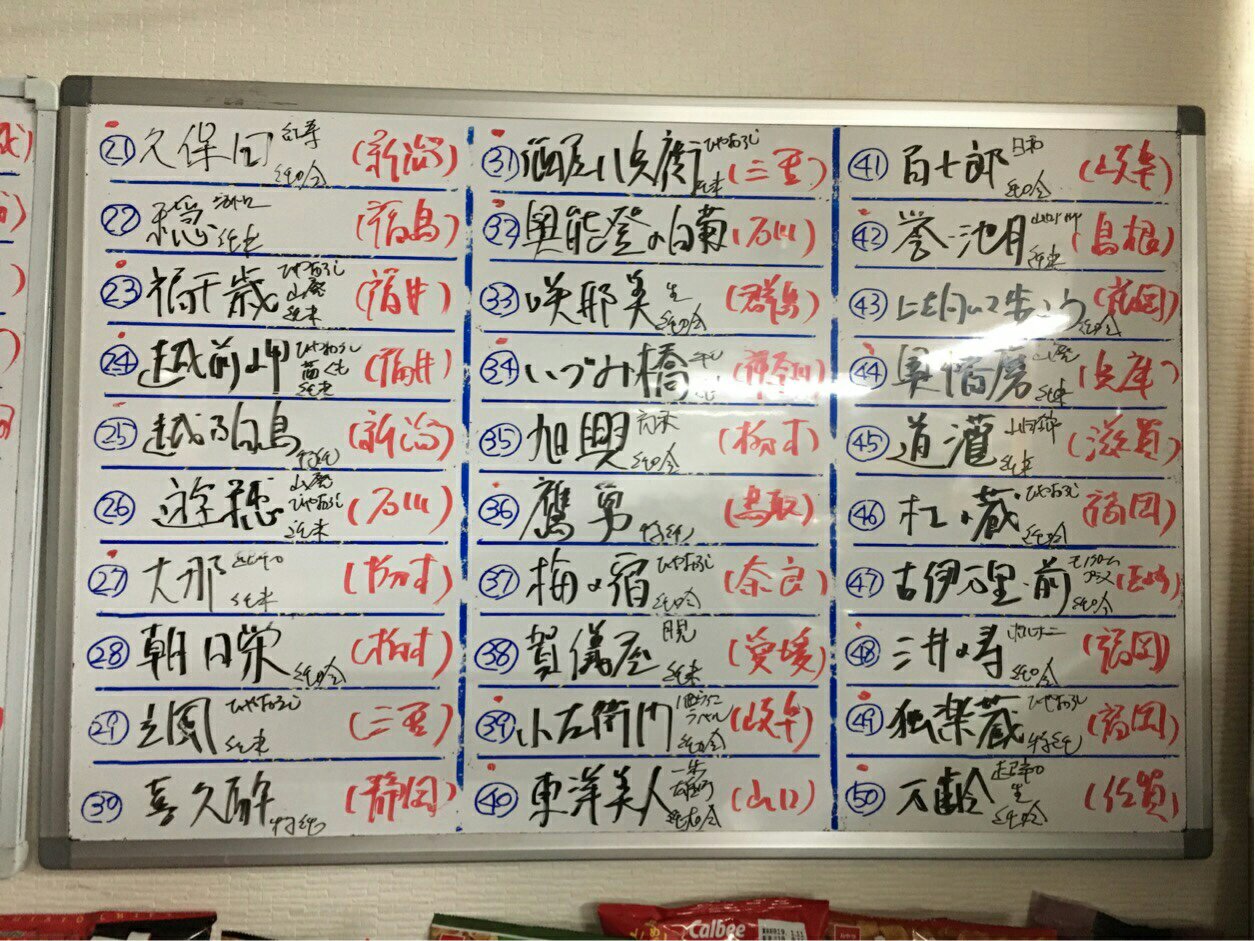 ㉑ 久保田 紅寿 純吟 (新潟)
㉒ 穏 純米 (福島)
㉓ 福千歳 ひやおろし 山廃 純米 (福井)
㉔ 越前岬 ひやおろし 純米 (福井)
㉕ 越乃白鳥 特純 (新潟)
㉖ 遊穂 山廃 ひやおろし 純米 (石川)
㉗ 大那 純米 (栃木)
㉘ 朝日栄 純吟 (栃木)
㉙ ひやおろし 純米 (三重)
㊴ 喜久酔 特純 (静岡)
㉛ 酒屋八兵衛 ひやおろし 純米 (三重)
㉜ 奥能登の白菊 (石川)
㉝ 咲耶美 生 純吟 (群馬)
㉞ いづみ橋 (神奈川)
㉟ 旭興 純吟 (栃木)
㊱ 鷹勇 特純 (鳥取)
㊲ 梅の宿 ひやおろし 純吟 (奈良)
㊳ 賀儀屋 月見 純米 (愛媛)
㊴ 小左衛門 純吟 (岐阜)
㊵ 東洋美人 一歩 純吟 (山口)
㊶ 百十郎 日和 純吟 (岐阜)
㊷ 誉池月 純米 (島根)
㊸ 上を向いて歩こう 純吟 (福岡)
㊹ 播磨 山廃 純米 (兵庫)
㊺ 道灌 純米 (滋賀)
㊻ 杜の蔵 ひやおろし 純吟 (福岡)
㊼ 古伊万里 前 純吟
㊽ 三井の寿 純吟 (福岡)
㊾ 独楽蔵 ひやおろし 特純 (福岡)
㊿ 万齢 超辛口 生 純吟 (佐賀)
Calbee